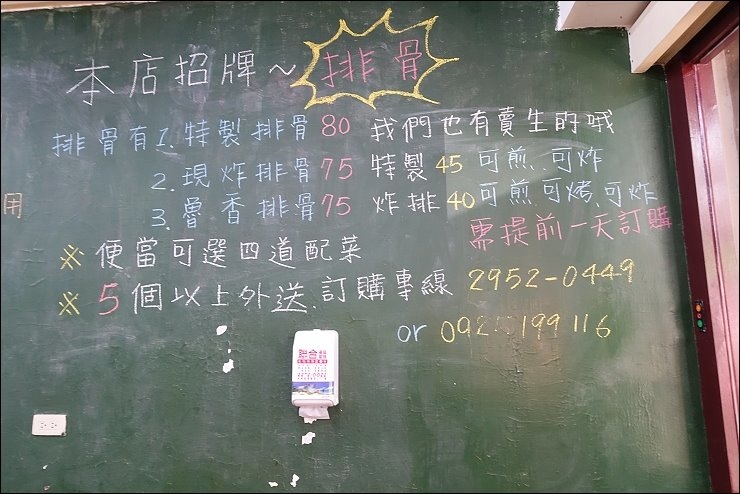 本店招牌~排骨
排骨有1.特製排骨80 我們也有賣生的哦
2.現炸排骨75 特製45可煎、可炸
3.魯香排骨75 炸排40可煎、可烤、可炸
用
需提前一天訂購
※便當可選四道配菜
※5個以上外送、訂購專線 2952-0449
or 092 199116
聯合